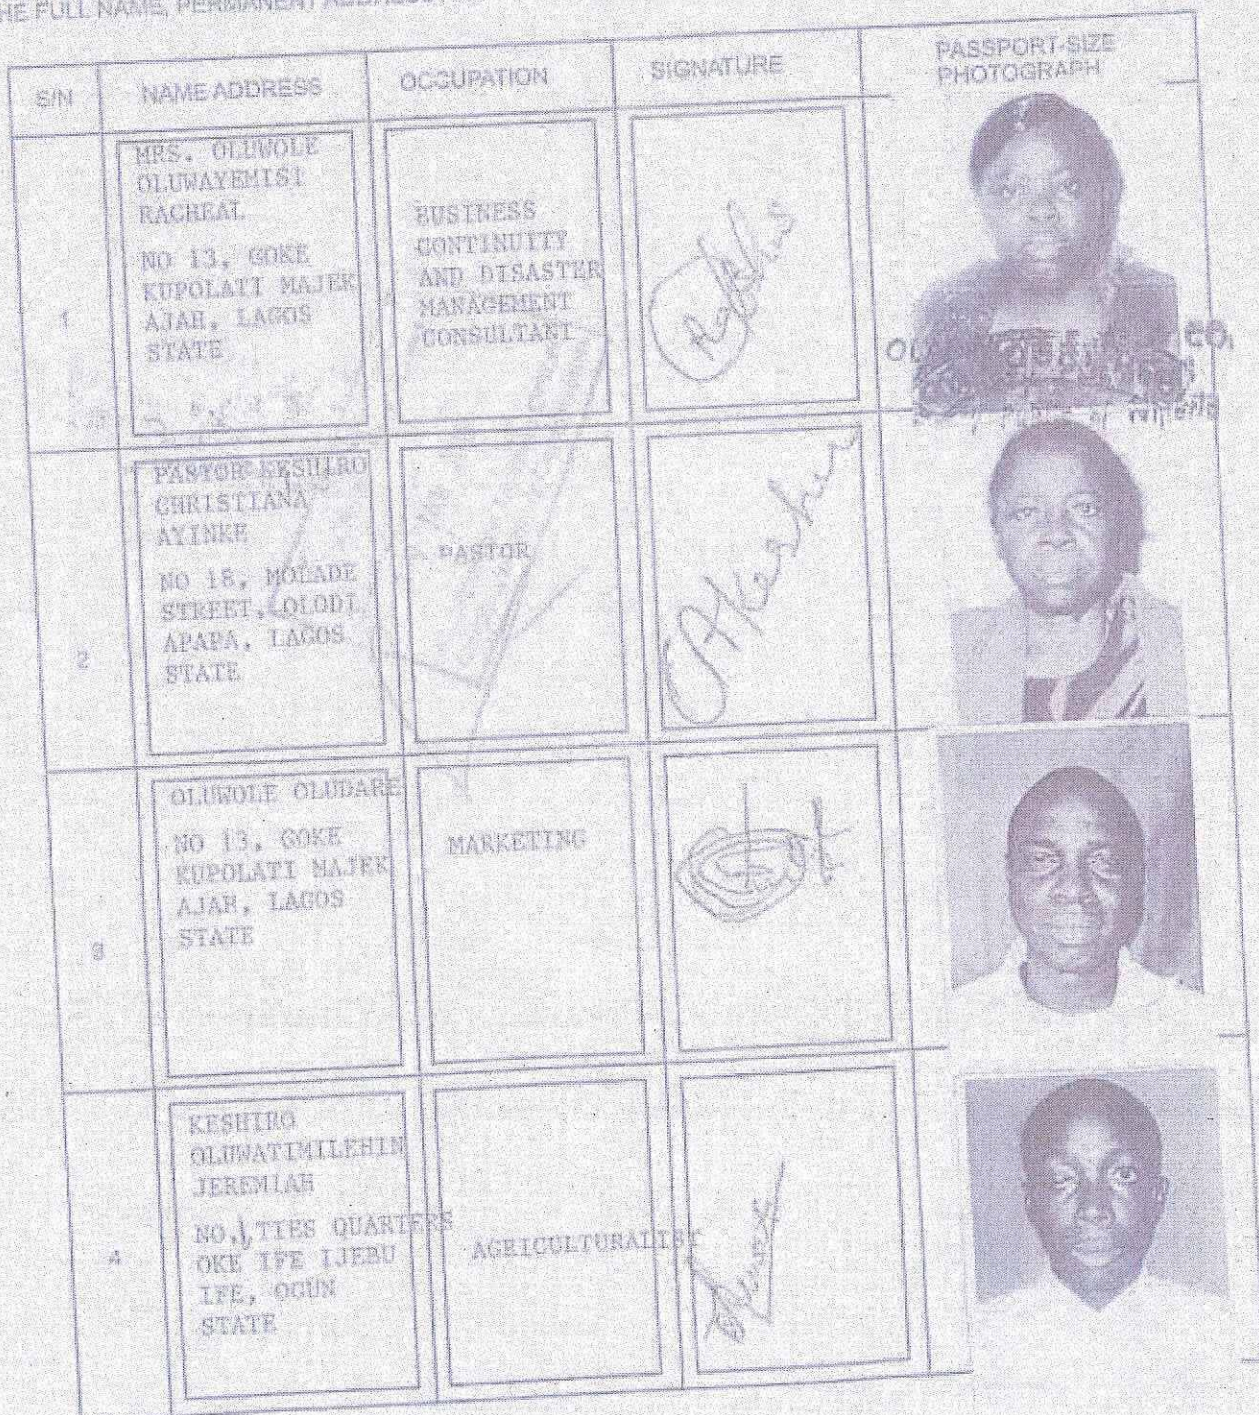 THE FULL NAME, PERMANENT
S/N
NAME ADDRESS
OCCUPATION
SIGNATURE
PASSPORT-SIZE
PHOTOGRAPH
1
MRS. OLUWOLE
OLUWAYEMISI
RACHEAL
NO 13, GOKE
KUPOLATI MAJEK
AJAH, LAGOS
STATE
BUSINESS
CONTINUITY
AND DISASTER
MANAGEMENT
CONSULTANT
CO.
Public of Nigeria
2
PASTOR KESHIRO
CHRISTIANA
AYINKE
NO 18, MOLADE
STREET, OLODI
APAPA, LAGOS
STATE
PASTOR
3
OLUWOLE OLUDARE
NO 13, GOKE
KUPOLATI MAJEK
AJAH, LAGOS
STATE
MARKETING
4
KESHIRO
OLUWATIMILEHIN
JEREMIAH
NO,1,TTES QUARTERS
OKE IFE IJEBU
IFE, OGUN
STATE
AGRICULTURALIST